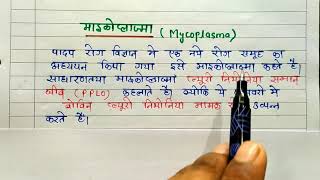 माइकोप्लाज्मा
(Mycoplasma)
पादप रोग विज्ञान में एक नये रोग समूह का
अध्ययन किया गया इसे माइकोप्लाज्मा कहते हैं।
साधारणतया माइकोप्लाज्मा प्ल्यूरो निमोनिया समान
जीव (PPLO) कहलाते हैं। क्योंकि ये में
बोविन प्ल्यूरो निमोनिया नामक उत्पन्न
करते हैं।